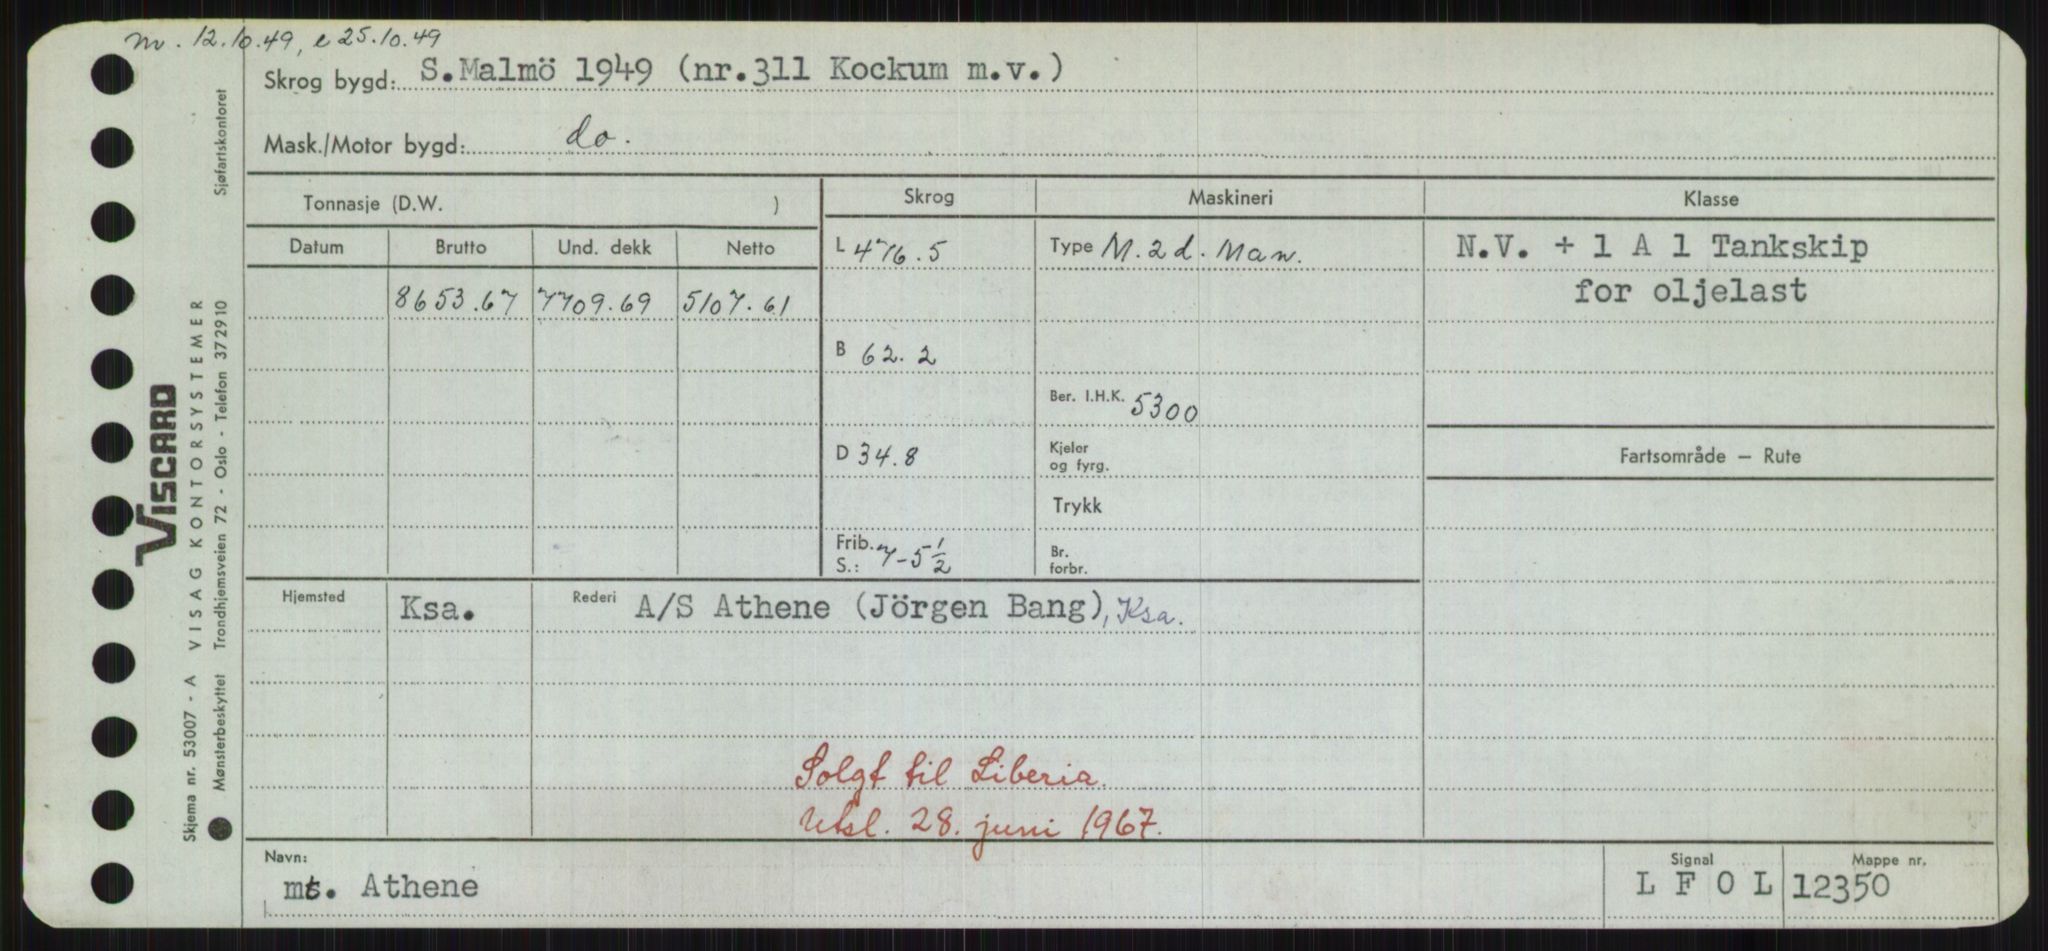 m. 12.10.49, e 25.10.49
Skrog bygd: S.Malmö 1949 (nr.311 Kockum m.v.)
Mask./Motor bygd: do.
Tonnasje (D.W. )
Skrog
Maskineri
Klasse
Datum Brutto Und. dekk Netto
L 476.5
Type M. 2 d. Man.
N.V. + 1 A 1 Tankskip
for oljelast
8653.67 7709.69 5107.61
B 62.2
Ber. I.H.K. 5300
D 34.8
Kjeler
og fyrg.
Fartsområde — Rute
Trykk
Frib.
S.: 7-5 1/2
Br.
forbr.
Hjemsted Ksa. Rederi A/S Athene (Jörgen Bang), Ksa.
Solgt til Liberia.
Utsl. 28. juni 1967.
Navn:
mts. Athene
Signal
L F O L
Mappe nr.
12350
VISCARD
Skjema nr. 53007 - A VISAG KONTORSYSTEMER
Mønsterbeskyttet Trondhjemsveien 72 - Oslo - Telefon 372910 Sjøfartskontoret